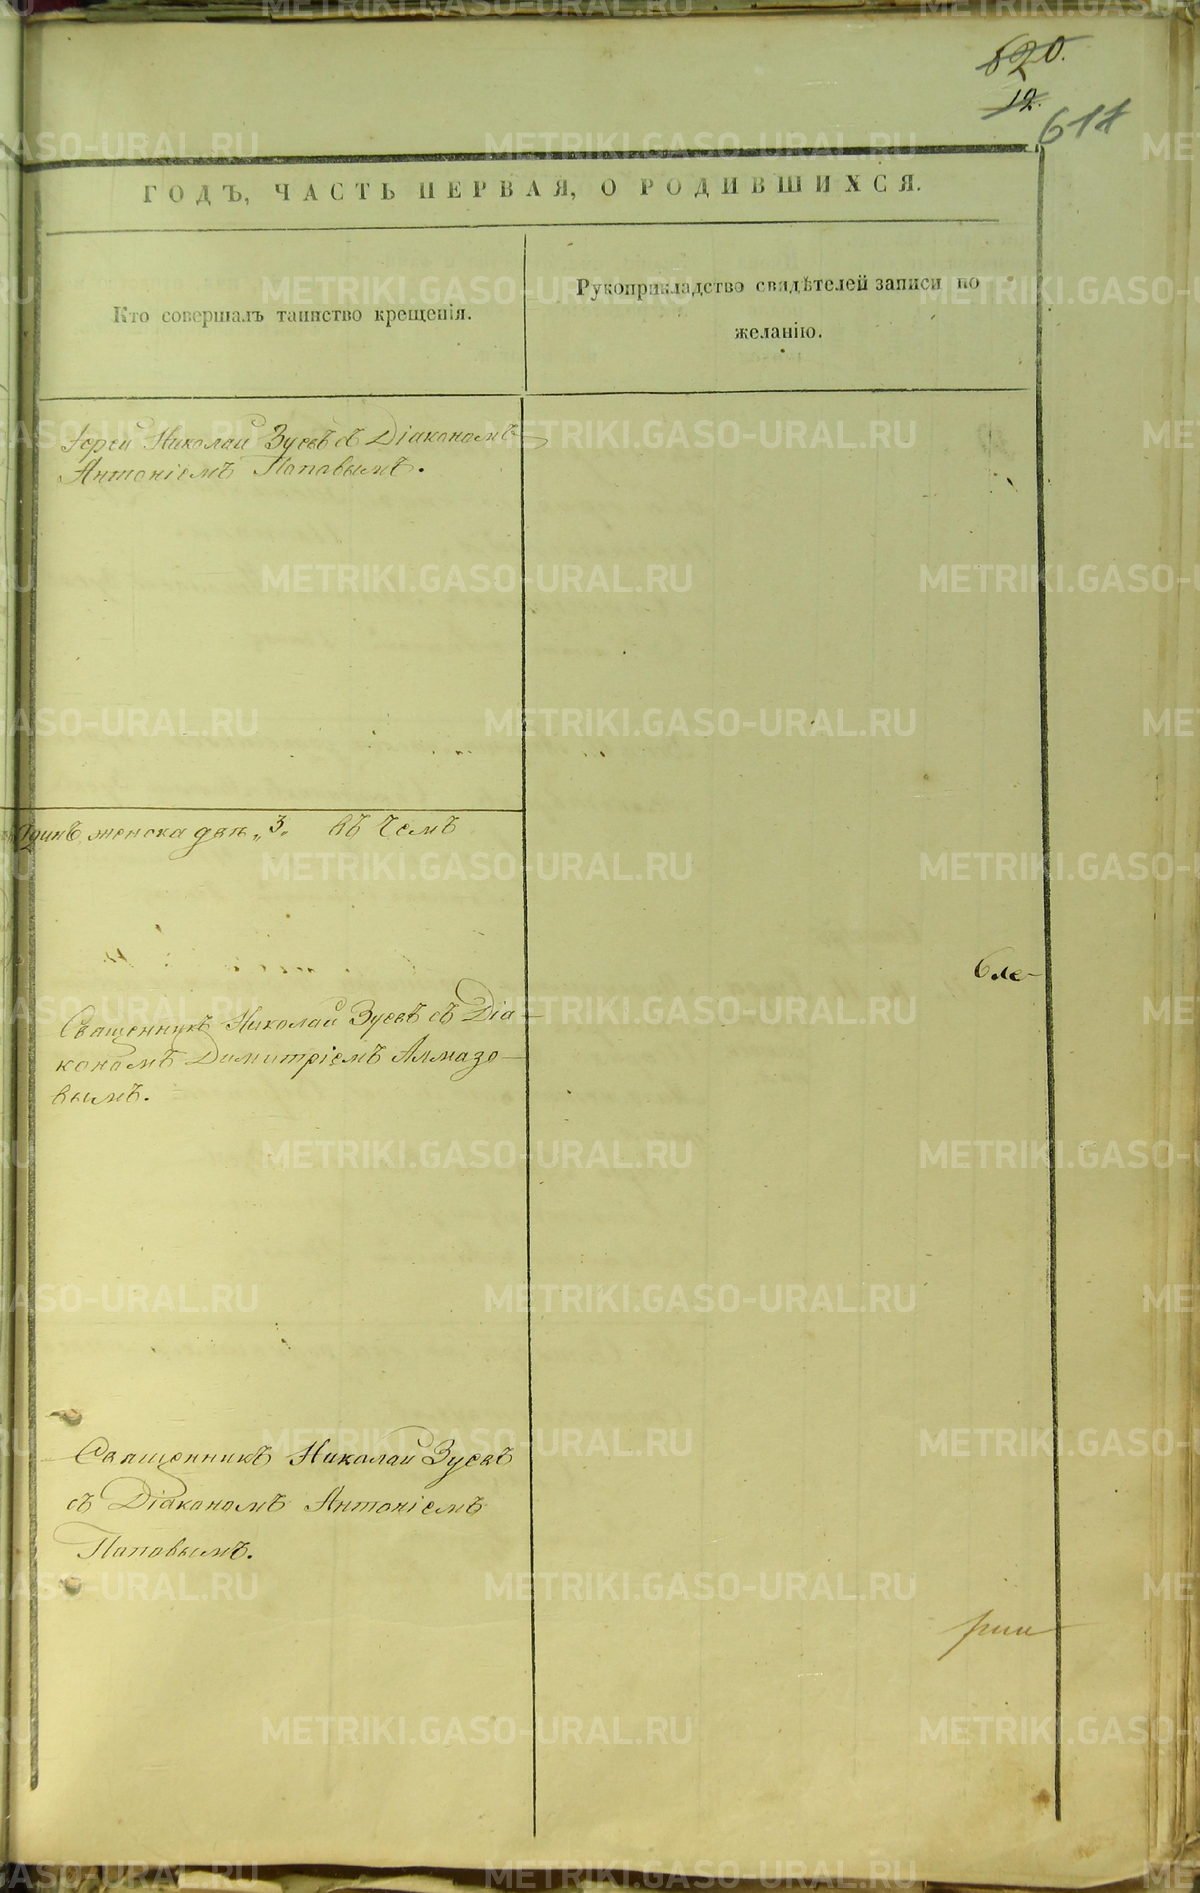 620.
12.
611
ГОДЪ, ЧАСТЬ ПЕРВАЯ, О РОДИВШИХСЯ.
Кто совершалъ таинство крещенія.
Рукоприкладство свидѣтелей записи по
желанію.
Іерей Николай Зуевъ съ Діакономъ
Антоніемъ Поповымъ.
Одинъ женска двѣ „3„ въ чемъ
бле-
Священникъ Николай Зуевъ съ Діа-
кономъ Димитріемъ Алмазо-
вымъ.
Священникъ Николай Зуевъ
съ Діакономъ Антоніемъ
Поповымъ.
METRIKI.GASO-URAL.RU